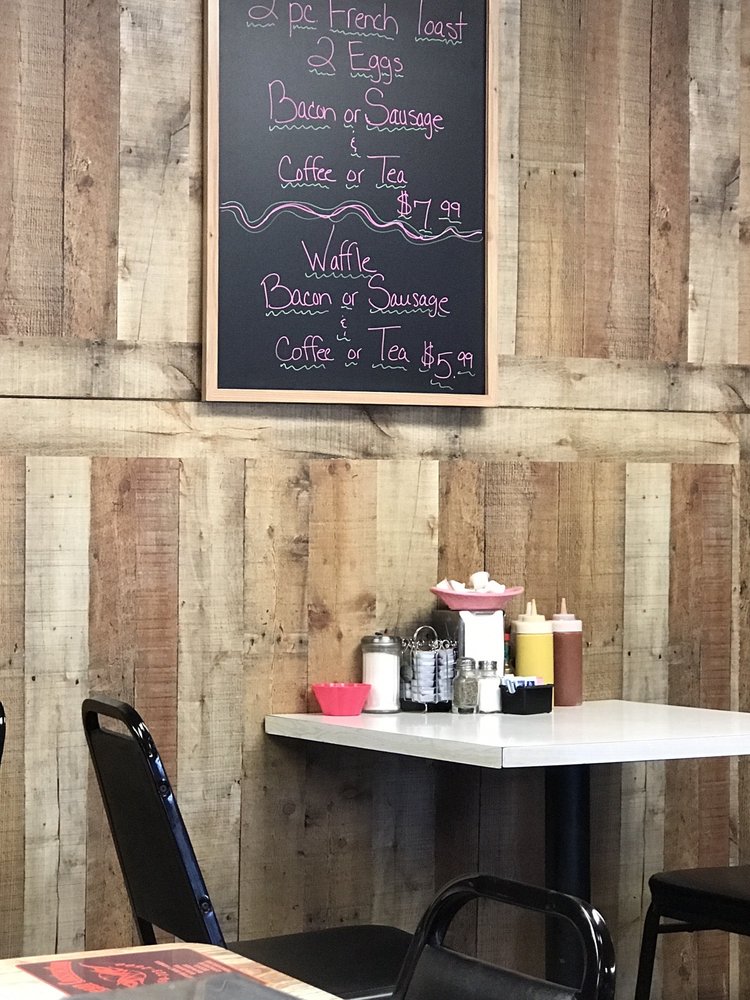 2 pc French Toast
2 Eggs
Bacon or Sausage
&
Coffee or Tea
$7.99
Waffle
Bacon or Sausage
&
Coffee or Tea $5.99